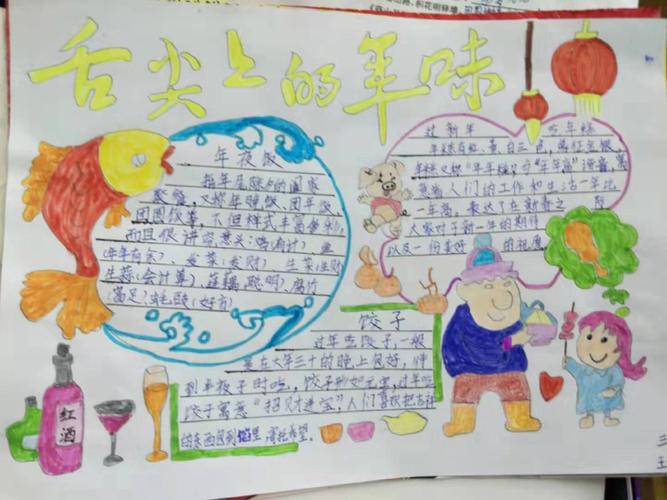 舌尖上的年味
年夜饭
指年尾除夕的阖家
聚餐,又称年晚饭、团年饭、
团圆饭等,不但样式丰富多彩,
而且很讲究意头:鸡(有计) 鱼
(年年有余)、发菜(发财) 生菜(生财
生蒜(会计算)、莲藕(聪明)、腐竹
(富足) 蚝豉(好市)
过新年 吃年糕
年糕有红、黄、白三色,象征金银,
年糕又称“年年糕”,与“年年高”谐音,寓
意着人们的工作和生活一年比
一年高,表达了在新春之 际
人家对于新一年的期待
以及一份美好 的祝愿
饺子
过年吃饺子,一般
要在大年三十的晚上包好,待
到半夜子时吃,饺子形如元宝,过年吃
饺子寓意“招财进宝”,人们喜欢把吉祥
的东西包到馅里寄托希望。
红酒
三
王